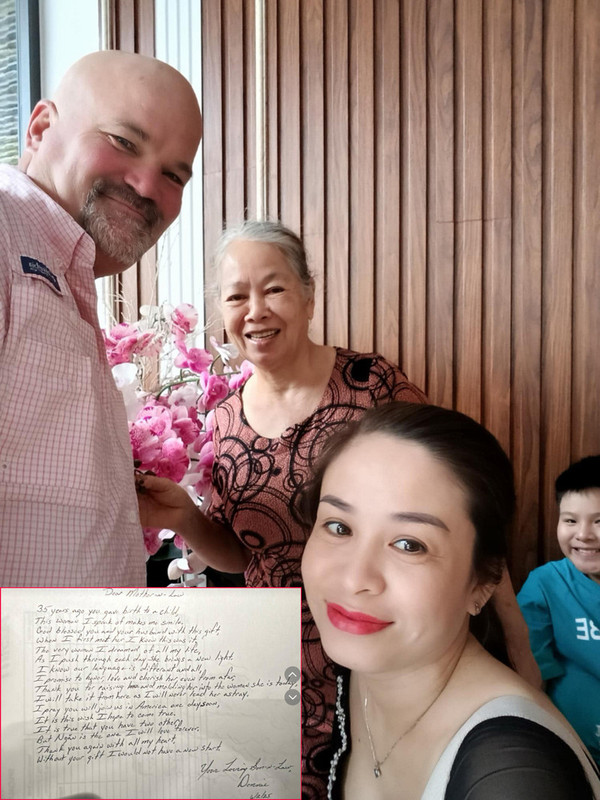 Dear Mother-n-Law
35 years ago you gave birth to a child,
This woman I speak of makes me smile,
God blessed you and your husband with this gift,
When I first met her I knew this was it,
The very woman I dreamed of all my life,
As I push through each day she brings a new light.
I know our language is different and all
I promise to honor, love and cherish her even from afar,
Thank you for raising and molding her into the woman she is today,
I will take it from here as I will never lead her astray.
I pray you will join us in America one day soon,
It is this wish I hope to come true,
It is true that you have two others,
But Nghw is the one I will love forever.
Thank you again with all my heart,
Without your gift I would not have a new start.
Your Loving Son-n-Law,
Donnie
RE